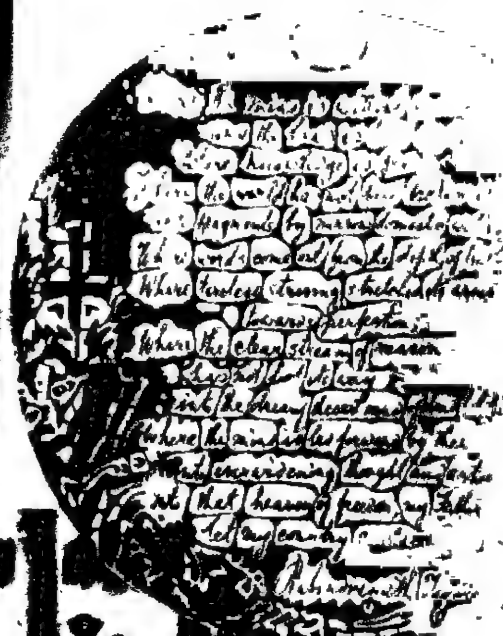 the mind is without
and the head
Where knowledge is free
Where the world has not been broken
fragments by narrow domestic
Where words come out from the depth of
Where tireless striving stretches its arms
towards perfection
Where the clear stream of reason
has not lost its way
into the dreary desert sand of
Where the mind is led forward by thee
into everwidening thought and action
into that heaven of freedom, my Father
Let my country
Rabindranath Tagore